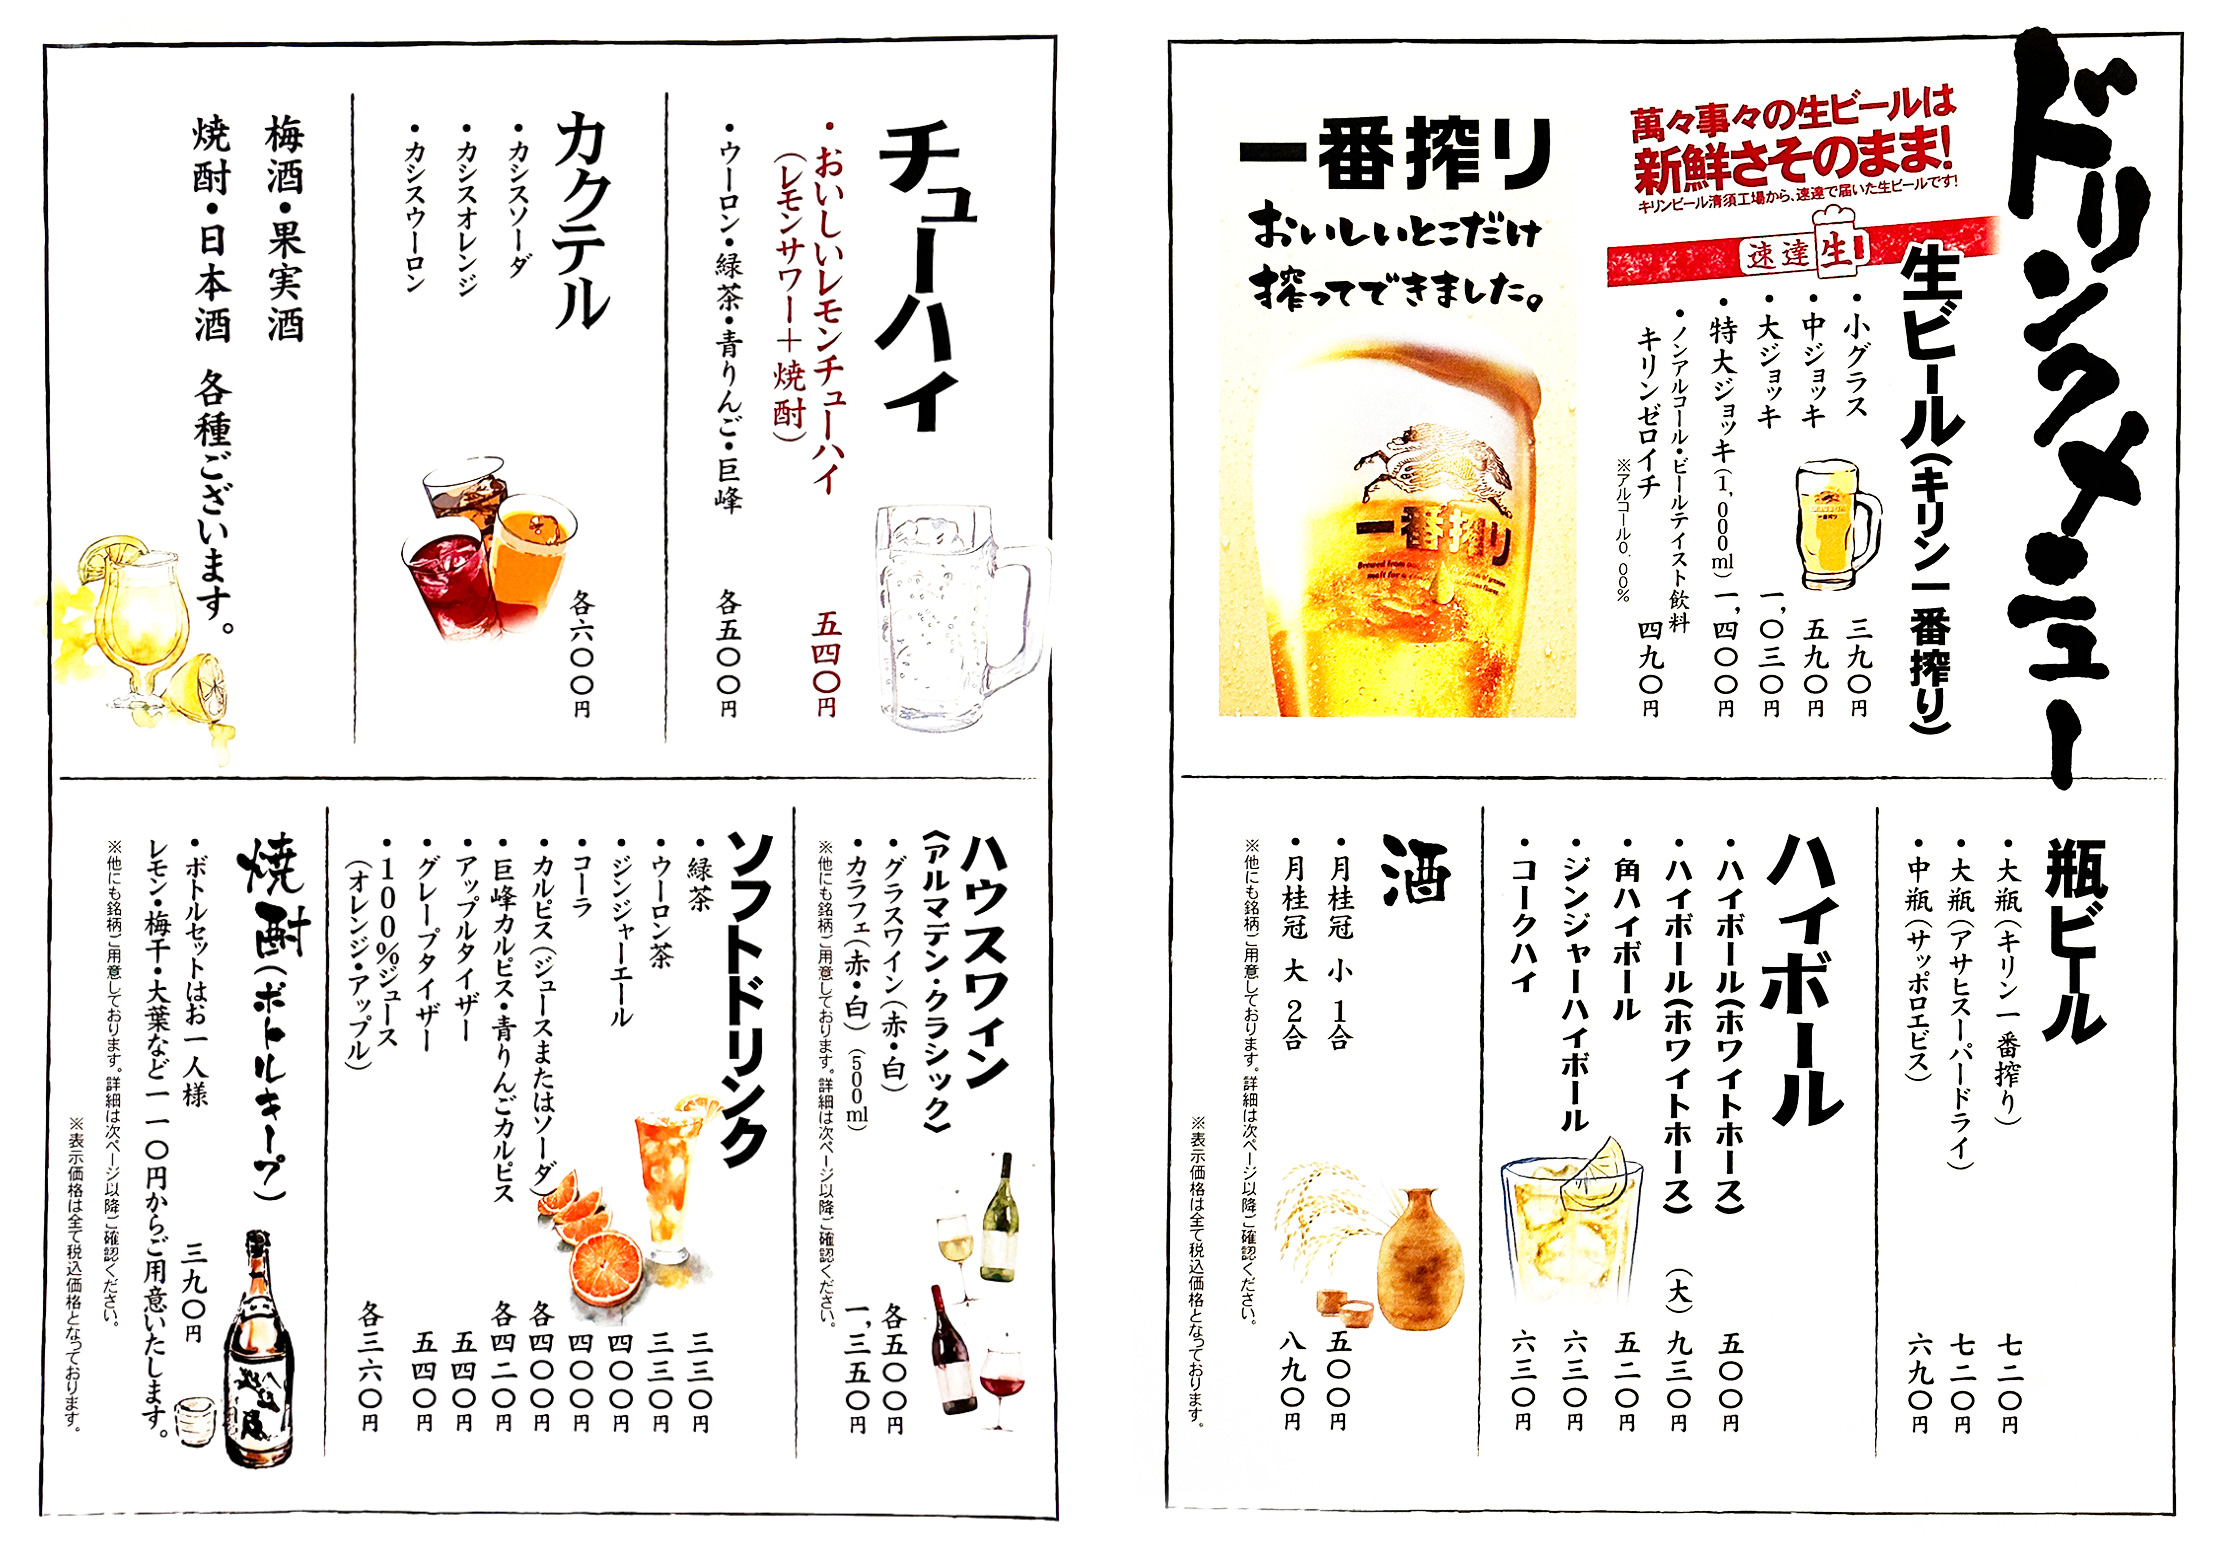 ドリンクメニュー
萬々事々の生ビールは
新鮮さそのまま!
キリンビール清須工場から、速達で届いた生ビールです!
速達生
生ビール(キリン一番搾り)
・小グラス 三九〇円
・中ジョッキ 五九〇円
・大ジョッキ 一,〇三〇円
・特大ジョッキ(1,000ml) 一,四〇〇円
・ノンアルコール・ビールテイスト飲料
キリンゼロイチ 四九〇円
※アルコール0.00%
一番搾り
おいしいとこだけ
搾ってできました。
一番搾り
瓶ビール
・大瓶(キリン一番搾り) 七二〇円
・大瓶(アサヒスーパードライ) 七二〇円
・中瓶(サッポロエビス) 六九〇円
ハイボール
・ハイボール(ホワイトホース) 五〇〇円
・ハイボール(ホワイトホース) (大) 九三〇円
・角ハイボール 五二〇円
・ジンジャーハイボール 六三〇円
・コークハイ 六三〇円
酒
・月桂冠 小 1合 五〇〇円
・月桂冠 大 2合 八九〇円
※他にも銘柄ご用意しております。詳細は次ページ以降ご確認ください。
※表示価格は全て税込価格となっております。
チューハイ
・おいしいレモンチューハイ 五四〇円
(レモンサワー+焼酎)
・ウーロン・緑茶・青りんご・巨峰 各五〇〇円
カクテル
・カシスソーダ
・カシスオレンジ
・カシスウーロン
各六〇〇円
梅酒・果実酒
焼酎・日本酒 各種ございます。
ハウスワイン
〈アルマデン・クラシック〉
・グラスワイン(赤・白) 各五〇〇円
・カラフェ(赤・白)(500ml) 一,三五〇円
※他にも銘柄ご用意しております。詳細は次ページ以降ご確認ください。
ソフトドリンク
・緑茶 三三〇円
・ウーロン茶 三三〇円
・ジンジャーエール 四〇〇円
・コーラ 四〇〇円
・カルピス(ジュースまたはソーダ) 各四〇〇円
・巨峰カルピス・青りんごカルピス 各四二〇円
・アップルタイザー 五四〇円
・グレープタイザー 五四〇円
・100%ジュース
(オレンジ・アップル) 各三六〇円
焼酎(ボトルキープ)
・ボトルセットはお一人様 三九〇円
レモン・梅干・大葉など一一〇円からご用意いたします。
※他にも銘柄ご用意しております。詳細は次ページ以降ご確認ください。
※表示価格は全て税込価格となっております。